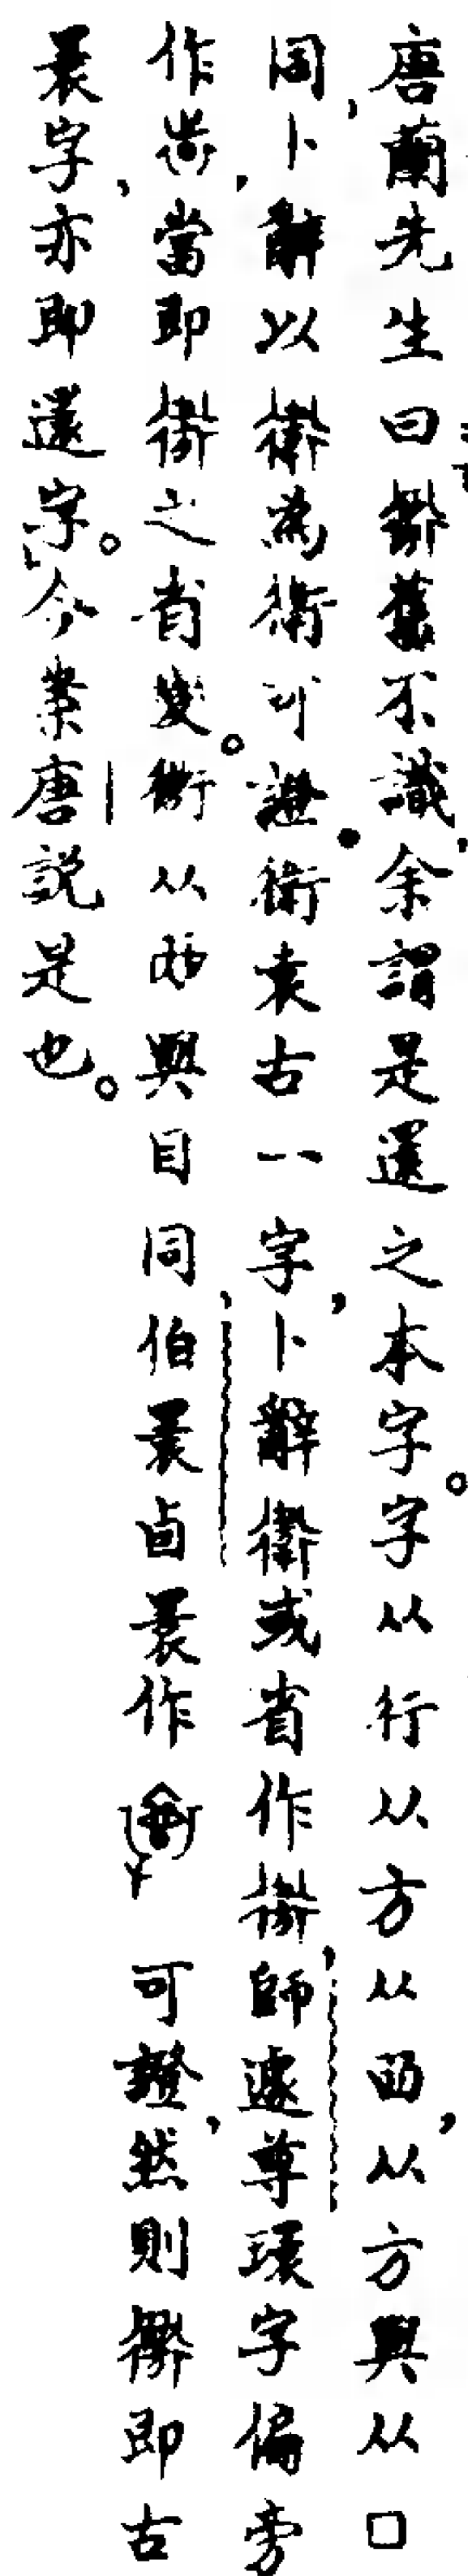 唐蘭先生曰舊不識，余謂是還之本字。字从行从方从，从方與从口
同，卜辭以為衛可證，袁古一字，卜辭或省作，師遽尊環字偏旁
作，當即之省變。从與目同，伯睘卣睘作可證，然則即古
睘字，亦即還字。」今案唐說是也。